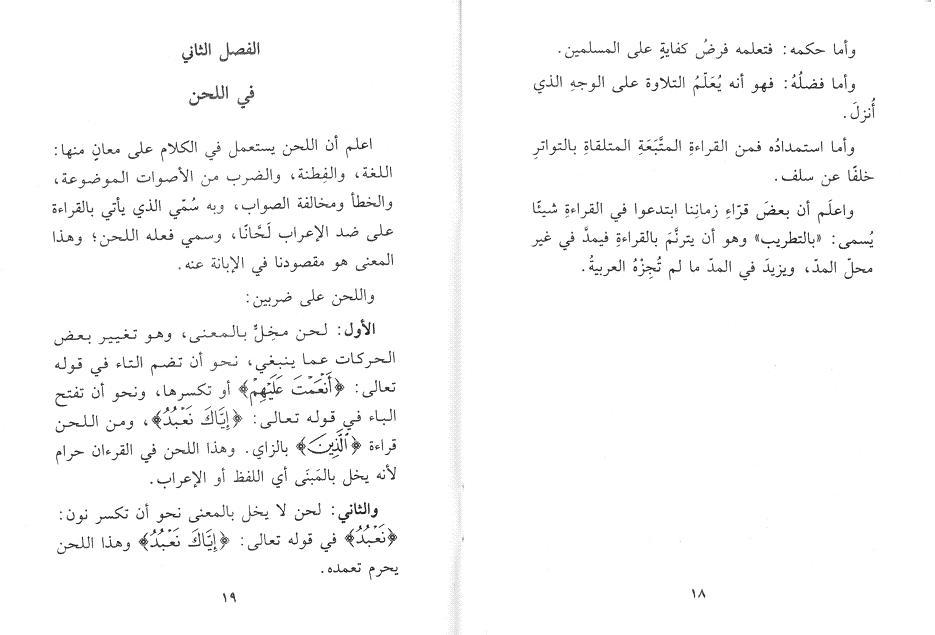 وأما حكمه: فتعلمه فرضُ كفايةٍ على المسلمين.
وأما فضلُهُ: فهو أنه يُعَلّمُ التلاوة على الوجهِ الذي
أُنزلَ.
وأما استمدادُه فمن القراءةِ المتَّبَعَةِ المتلقاةِ بالتواترِ
خلفًا عن سلف.
واعلَم أن بعضَ قرّاءِ زمانِنا ابتدعوا في القراءةِ شيئًا
يُسمى: «بالتطريب» وهو أن يترنَّمَ بالقراءةِ فيمدَّ في غير
محلّ المدّ، ويزيدَ في المدّ ما لم تُجِزْهُ العربيةُ.
١٨
الفصل الثاني
في اللحن
اعلم أن اللحن يستعمل في الكلام على معانٍ منها:
اللغة، والفِطنة، والضرب من الأصوات الموضوعة،
والخطأ ومخالفة الصواب، وبه سُمّي الذي يأتي بالقراءة
على ضد الإعراب لَحَّانًا، وسمي فعله اللحن؛ وهذا
المعنى هو مقصودنا في الإبانة عنه.
واللحن على ضربين:
الأول: لحن مخِلٍّ بالمعنى، وهو تغيير بعض
الحركات عما ينبغي، نحو أن تضم التاء في قوله
تعالى: ﴿أَنْعَمْتَ عَلَيْهِمْ﴾ أو تكسرها، ونحو أن تفتح
الباء في قوله تعالى: ﴿إِيَّاكَ نَعْبُدُ﴾، ومن اللحن
قراءة ﴿الَّذِينَ﴾ بالزاي. وهذا اللحن في القرءان حرام
لأنه يخل بالمَبنَى أي اللفظ أو الإعراب.
والثاني: لحن لا يخل بالمعنى نحو أن تكسر نون:
﴿نَعْبُدُ﴾ في قوله تعالى: ﴿إِيَّاكَ نَعْبُدُ﴾ وهذا اللحن
يحرم تعمده.
١٩